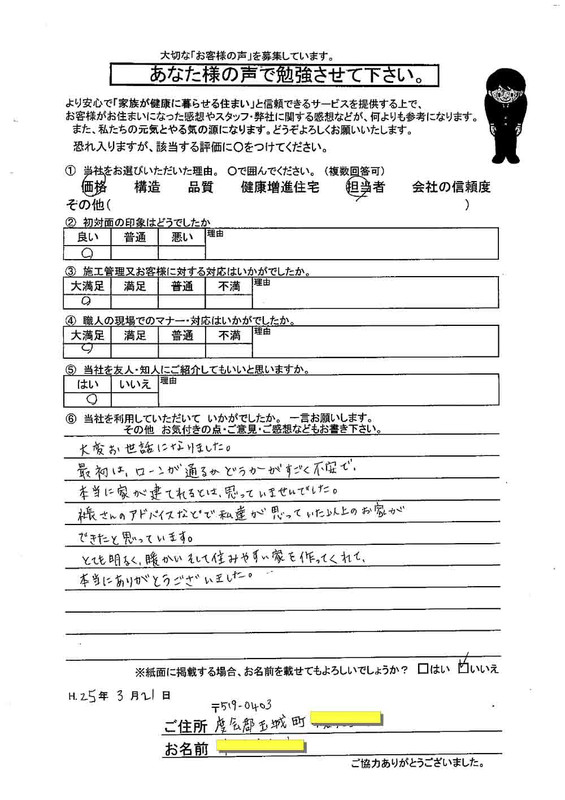 大切な「お客様の声」を募集しています。
あなた様の声で勉強させて下さい。
より安心で「家族が健康に暮らせる住まい」と信頼できるサービスを提供する上で、
お客様がお住まいになった感想やスタッフ・弊社に関する感想などが、何よりも参考になります。
また、私たちの元気とやる気の源になります。どうぞよろしくお願いいたします。
恐れ入りますが、該当する評価に○をつけてください。
① 当社をお選びいただいた理由。 ○で囲んでください。（複数回答可）
価格 構造 品質 健康増進住宅 担当者 会社の信頼度
その他( )
② 初対面の印象はどうでしたか
良い 普通 悪い 理由
○
③ 施工管理又お客様に対する対応はいかがでしたか。
大満足 満足 普通 不満 理由
○
④ 職人の現場でのマナー・対応はいかがでしたか。
大満足 満足 普通 不満 理由
○
⑤ 当社を友人・知人にご紹介してもいいと思いますか。
はい いいえ 理由
○
⑥ 当社を利用していただいて いかがでしたか。 一言お願いします。
その他 お気付きの点・ご意見・ご感想などもお書き下さい。
大変お世話になりました。
最初は、ローンが通るかどうかがすごく不安で、
本当に家が建てれるとは、思っていませんでした。
さんのアドバイスなどで私達が思っていた以上のお家が
できたと思っています。
とても明るく、暖かいそして住みやすい家を作ってくれて、
本当にありがとうございました。
※紙面に掲載する場合、お名前を載せてもよろしいでしょうか？ □はい ☑いいえ
H.25年 3月21日
〒519-0403
ご住所 度会郡玉城町
お名前
ご協力ありがとうございました。